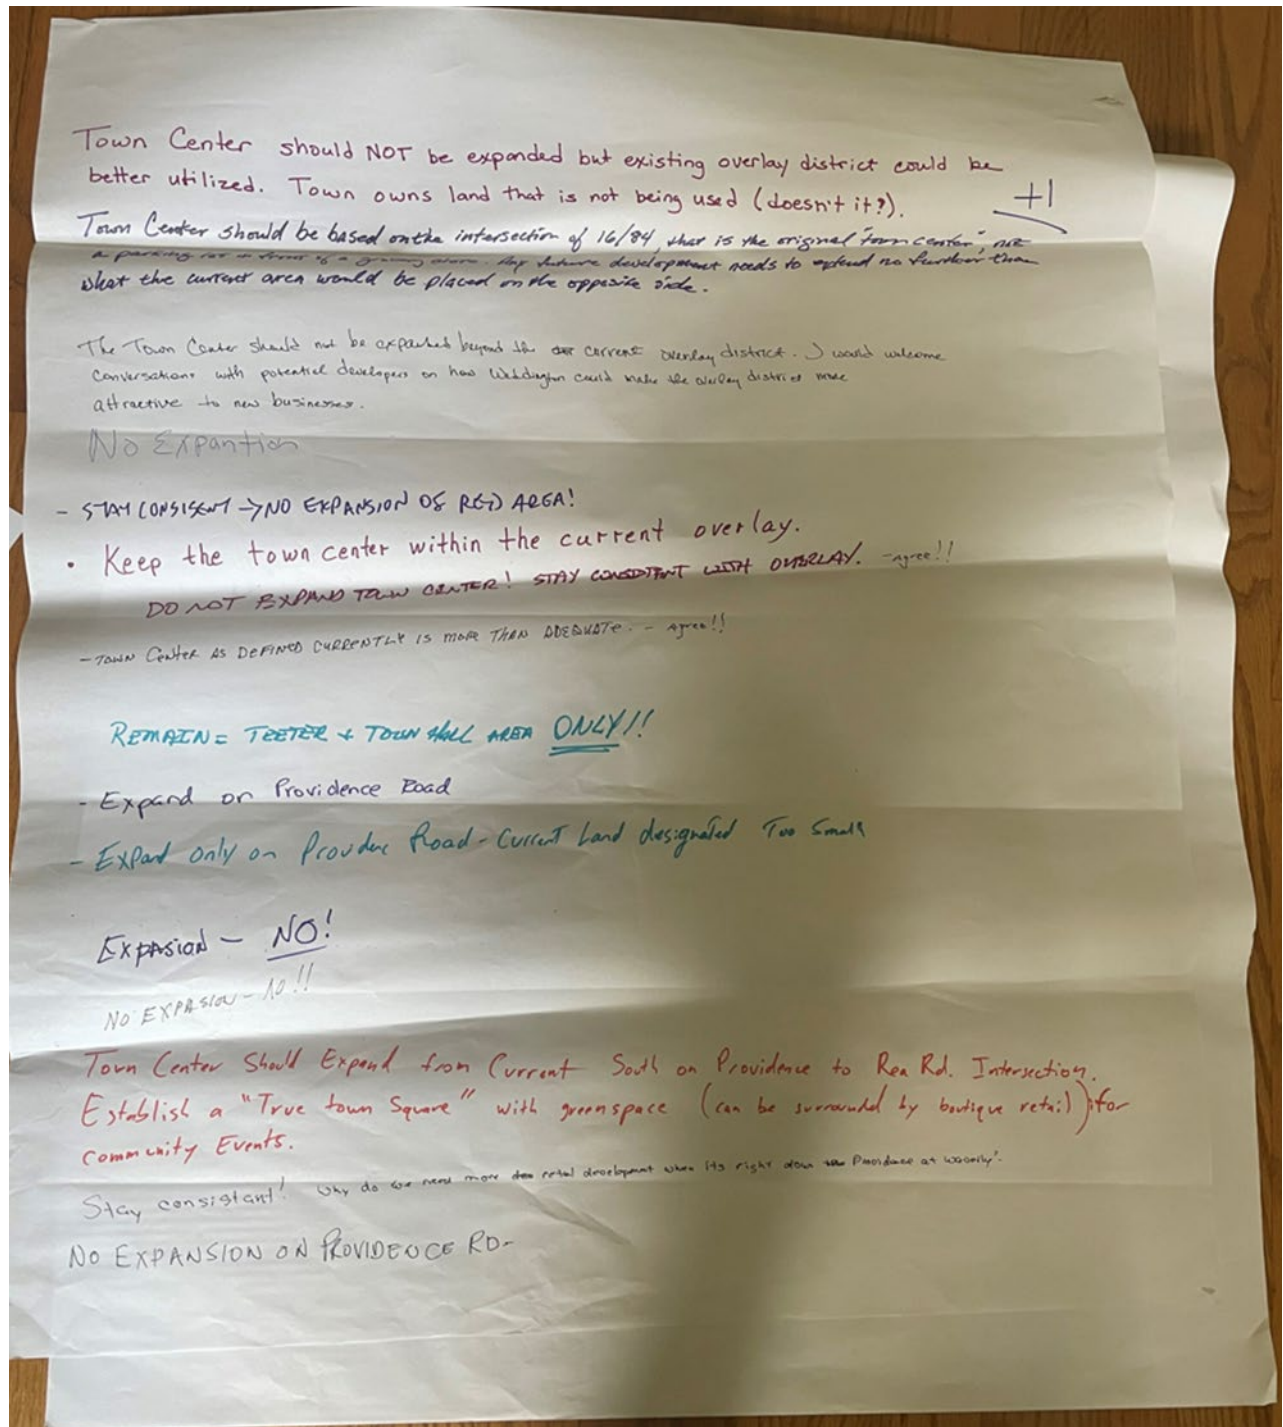 Town Center should NOT be expanded but existing overlay district could be
better utilized. Town owns land that is not being used (doesn't it?).
+1
Town Center should be based on the intersection of 16/84, that is the original "town center", not
a parking lot in front of a grocery store. Any future development needs to extend no further than
what the current area would be placed on the opposite side.
The Town Center should not be expanded beyond the current overlay district. I would welcome
conversations with potential developers on how Weddington could make the overlay district more
attractive to new businesses.
No Expantion
- STAY CONSISENT → NO EXPANSION OF RED AREA!
• Keep the town center within the current overlay.
DO NOT EXPAND TOWN CENTER! STAY CONSISTENT WITH OVERLAY. - agree!!
- TOWN Center AS DEFINED CURRENTLY IS MORE THAN ADEQUATE. - Agree!!
REMAIN = TEETER + TOWN HALL AREA ONLY!!
- Expand on Providence Road
- Expand only on Providenc Road - Current Land designated Too Small
Expasion - NO!
NO EXPASION - NO!!
Town Center Should Expand from Current South on Providence to Rea Rd. Intersection.
Establish a "True town Square" with greenspace (can be surrounded by boutique retail) for
Community Events.
Stay consistant! Why do we need more retail development when its right down Providence at Waverly?
NO EXPANSION ON PROVIDENCE RD-